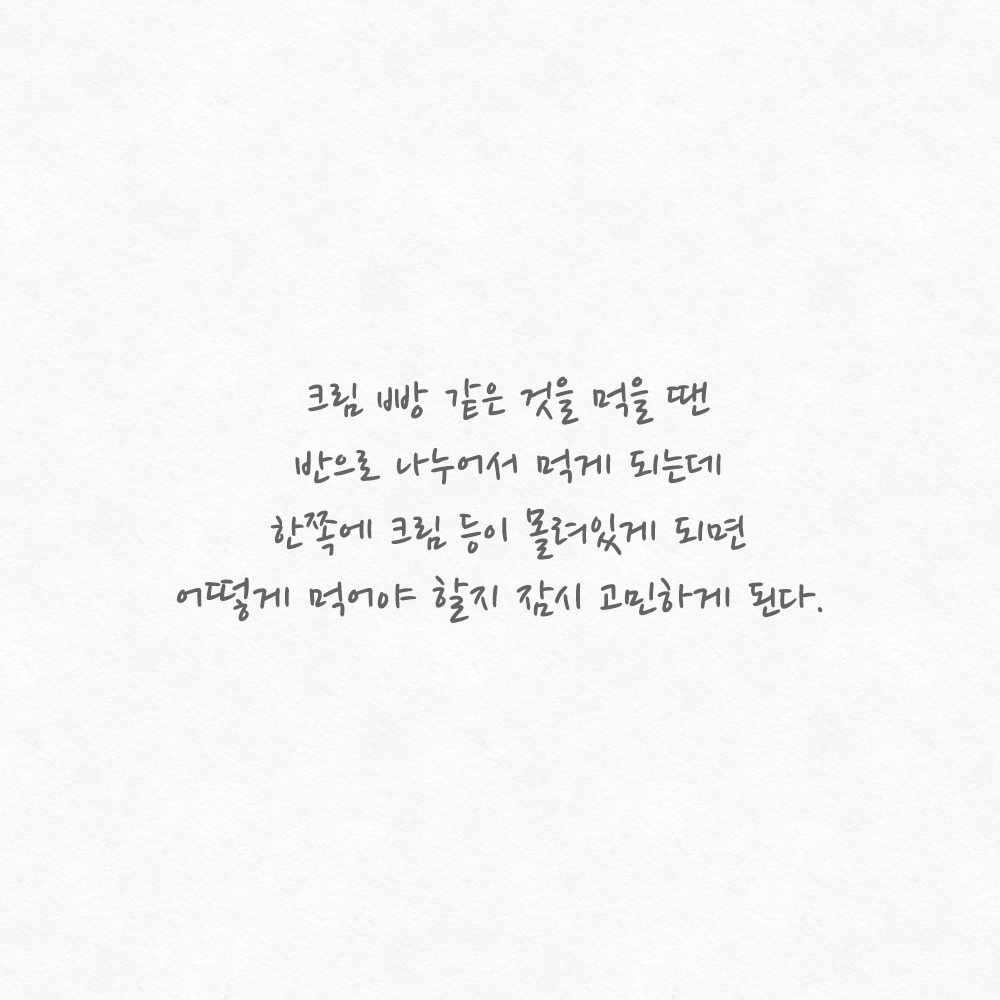 크림 빵 같은 것을 먹을 땐
반으로 나누어서 먹게 되는데
한쪽에 크림 등이 몰려있게 되면
어떻게 먹어야 할지 잠시 고민하게 된다.